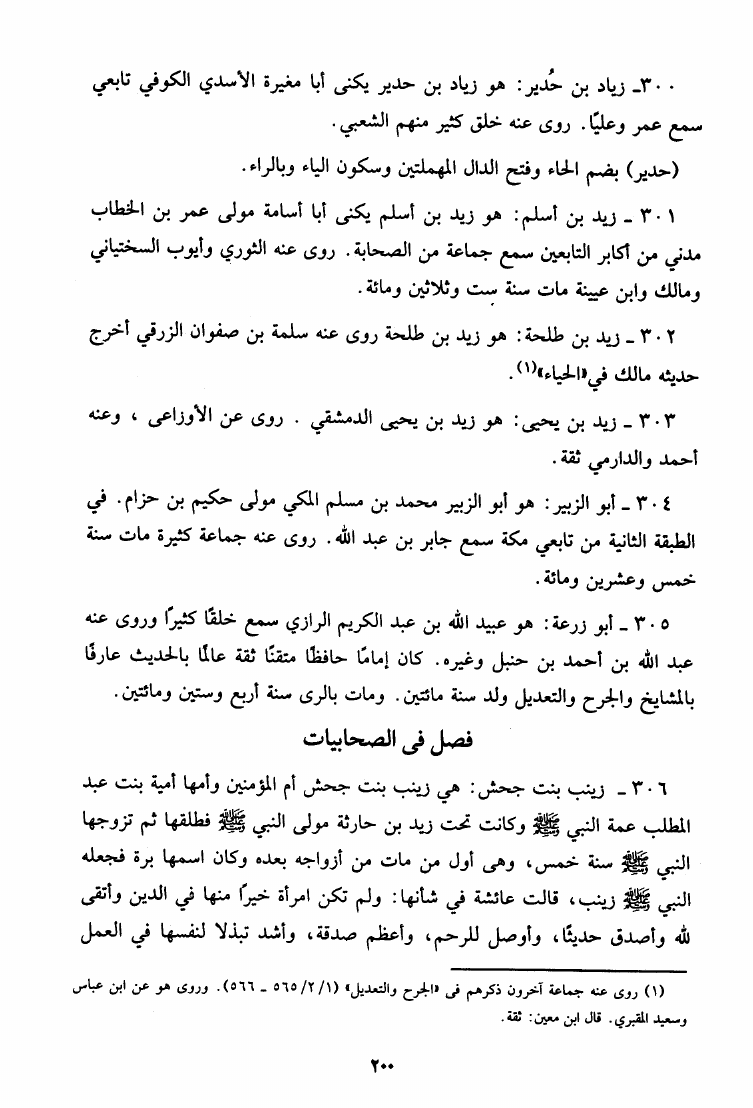 ٣٠٠ـ زياد بن حُدير: هو زياد بن حدير يكنى أبا مغيرة الأسدي الكوفي تابعي
سمع عمر وعليًا. روى عنه خلق كثير منهم الشعبي.
(حدير) بضم الحاء وفتح الدال المهملتين وسكون الياء وبالراء.
٣٠١ ـ زيد بن أسلم: هو زيد بن أسلم يكنى أبا أسامة مولى عمر بن الخطاب
مدني من أكابر التابعين سمع جماعة من الصحابة. روى عنه الثوري وأيوب السختياني
ومالك وابن عيينة مات سنة ست وثلاثين ومائة.
٣٠٢ ـ زيد بن طلحة: هو زيد بن طلحة روى عنه سلمة بن صفوان الزرقي أخرج
حديثه مالك في «الحياء»(١).
٣٠٣ ـ زيد بن يحيى: هو زيد بن يحيى الدمشقي . روى عن الأوزاعى ، وعنه
أحمد والدارمي ثقة.
٣٠٤ ـ أبو الزبير: هو أبو الزبير محمد بن مسلم المكي مولى حكيم بن حزام. في
الطبقة الثانية من تابعي مكة سمع جابر بن عبد الله. روى عنه جماعة كثيرة مات سنة
خمس وعشرين ومائة.
٣٠٥ ـ أبو زرعة: هو عبيد الله بن عبد الكريم الرازي سمع خلقًا كثيرًا وروى عنه
عبد الله بن أحمد بن حنبل وغيره. كان إمامًا حافظًا متقنًا ثقة عالمًا بالحديث عارفًا
بالمشايخ والجرح والتعديل ولد سنة مائتين. ومات بالرى سنة أربع وستين ومائتين.
فصل فى الصحابيات
٣٠٦ ـ زينب بنت جحش: هي زينب بنت جحش أم المؤمنين وأمها أمية بنت عبد
المطلب عمة النبي ﷺ وكانت تحت زيد بن حارثة مولى النبي ﷺ فطلقها ثم تزوجها
النبي ﷺ سنة خمس، وهى أول من مات من أزواجه بعده وكان اسمها برة فجعله
النبي ﷺ زينب، قالت عائشة في شأنها: ولم تكن امرأة خيرًا منها في الدين وأتقى
لله وأصدق حديثًا، وأوصل للرحم، وأعظم صدقة، وأشد تبذلا لنفسها في العمل
(١) روى عنه جماعة آخرون ذكرهم فى «الجرح والتعديل» (٥٦٥/٢/١ ـ ٥٦٦). وروى هو عن ابن عباس
وسعيد المقبري. قال ابن معين: ثقة.
٢٠٠